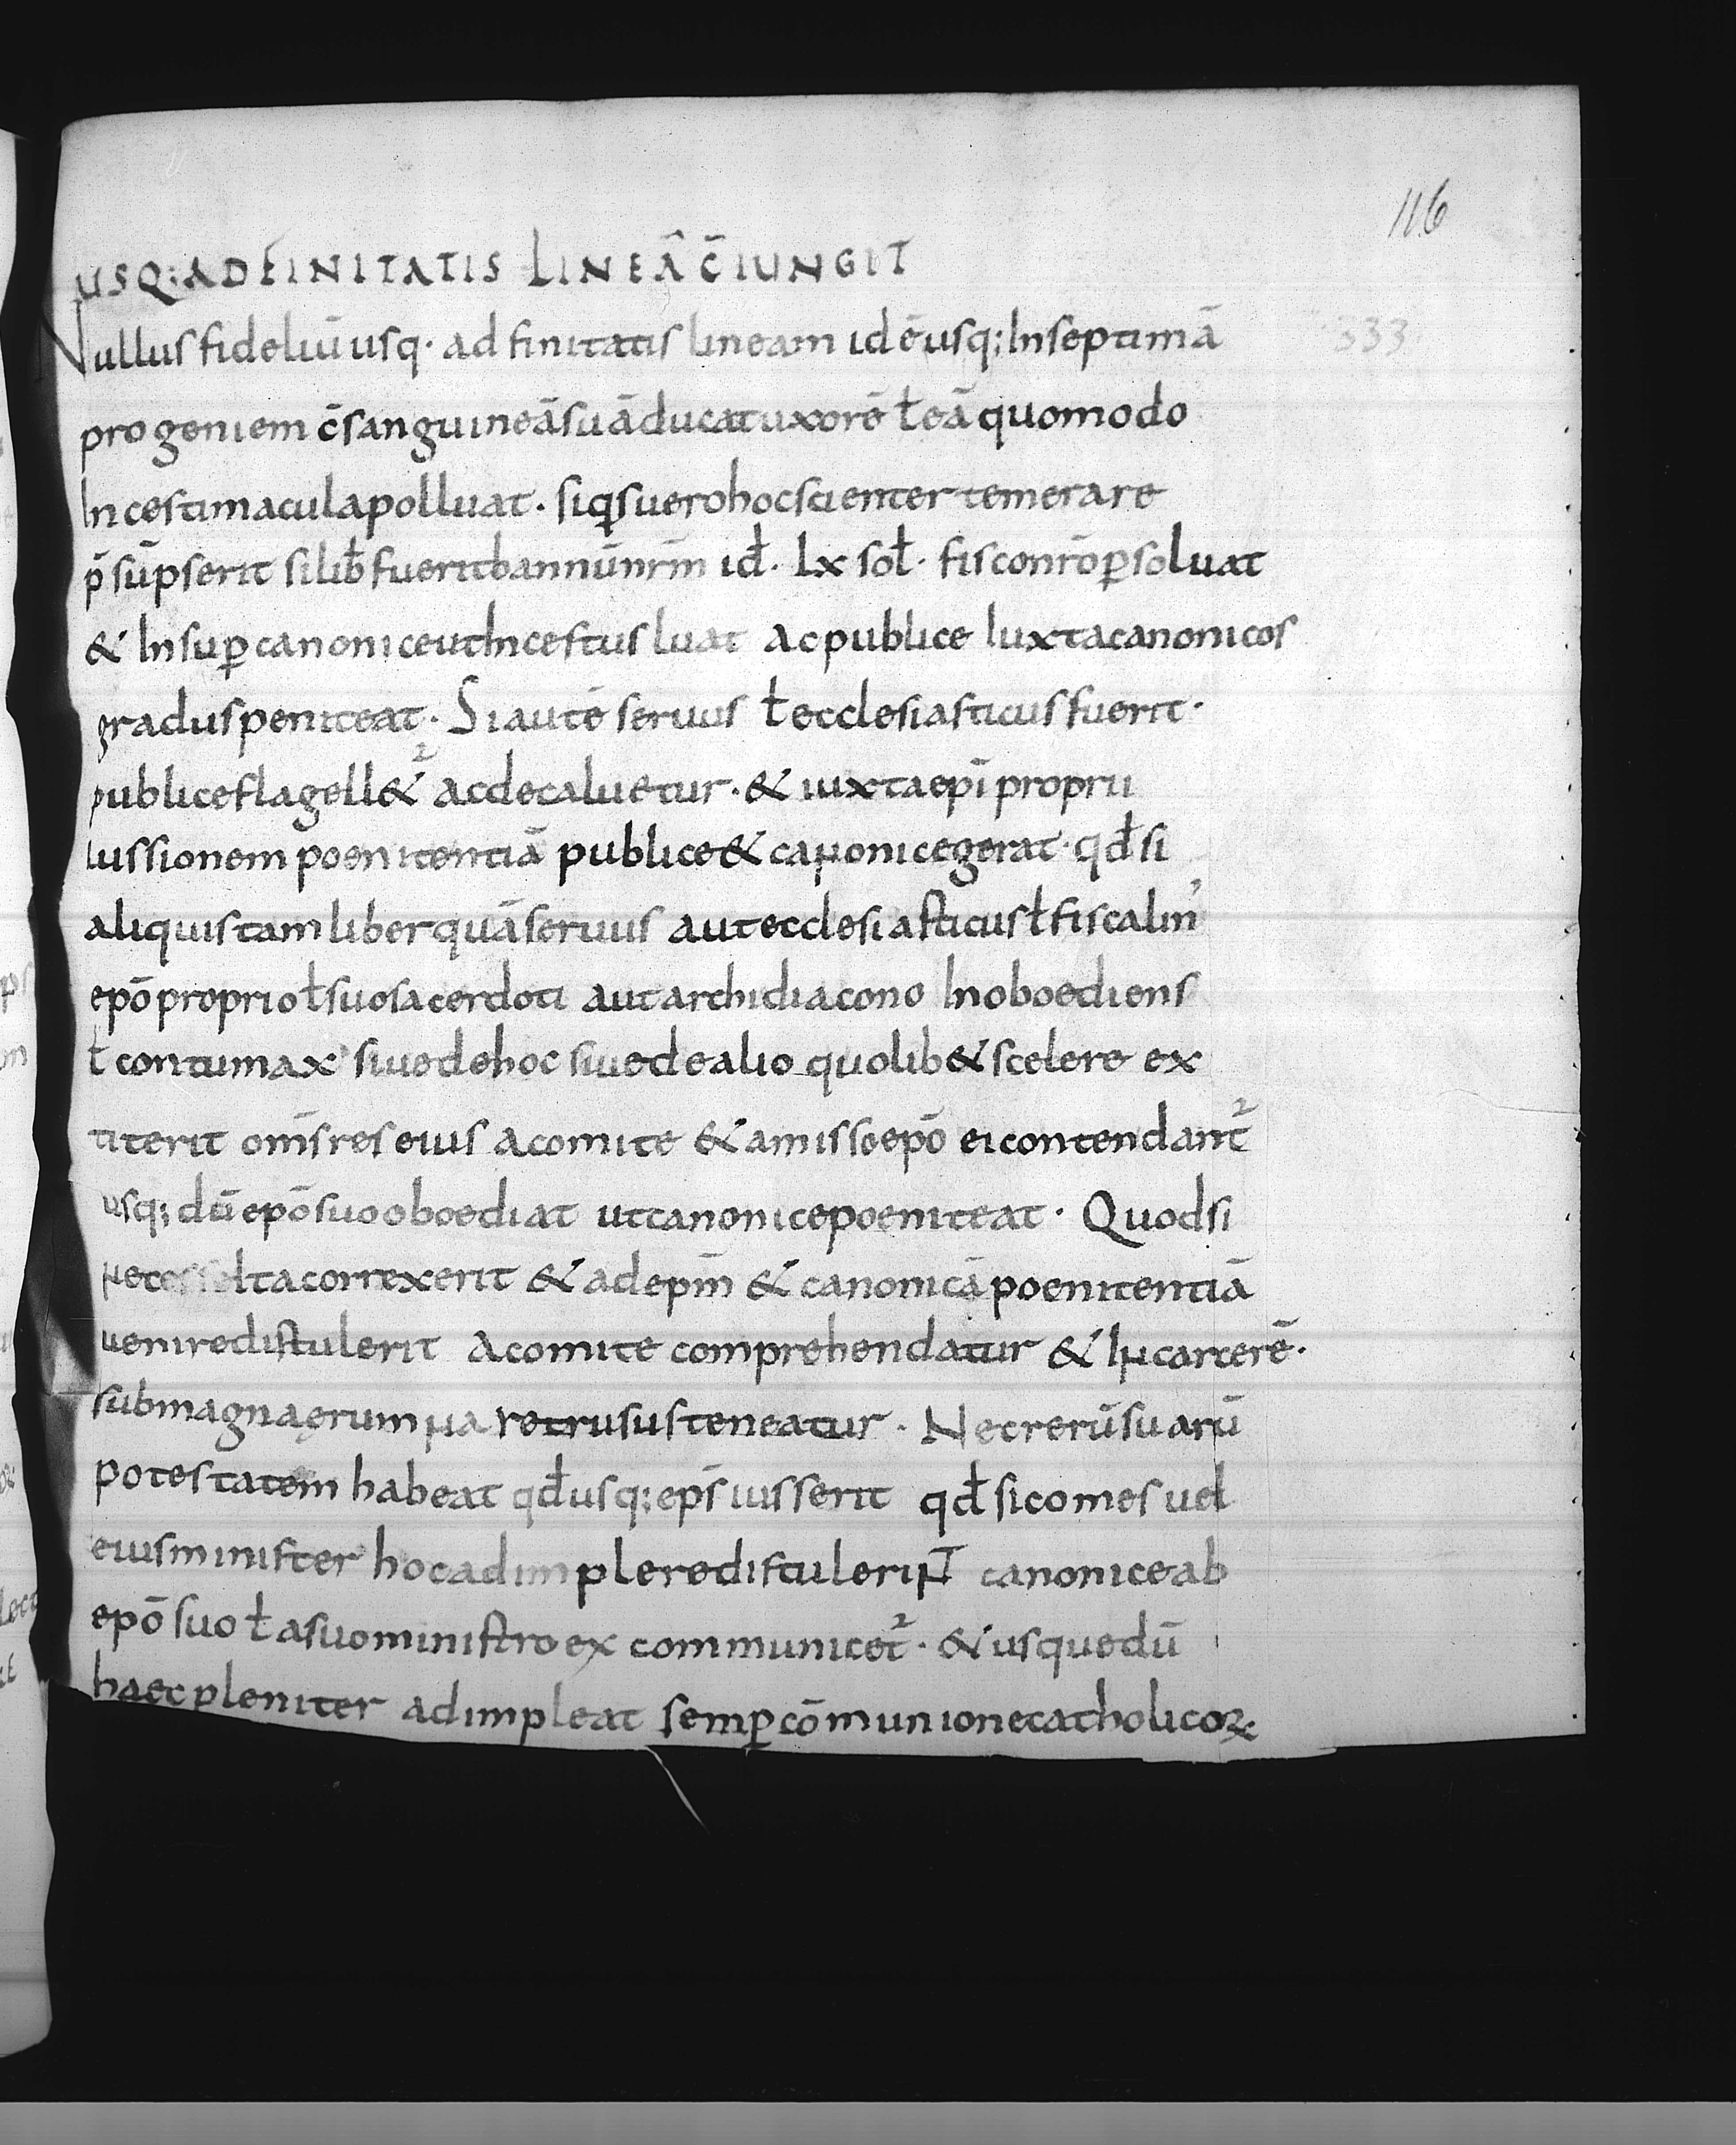 116
USQ; AD FINITATIS LINEÂ C̄IUNGIT
Nullus fideliū usq· ad finitatis lineam id ē usq; In septimā
333
progeniem c̄sanguineā suā ducat uxorē ł eā quomodo
Incesti macula polluat· si qs uero hoc scienter temerare
p̄sūpserit si lib̄ fuerit bannū nr̄m id̄· lx sol̄· fisco nr̄o ꝑsoluat
& Insuꝑ canonice ut Incestus luat ac publice Iuxta canonicos
gradus peniteat· Si autē seruus ł ecclesiasticus fuerit·
publice flagell&ᷣ ac decaluetur· & iuxta epī proprii
Iussionem poenitentiā publice & canonice gerat· qd̄ si
aliquis tam liber quā seruus aut ecclesiasticus ł fiscalin'
epō proprio ł suo sacerdoti aut archidiacono Inoboediens
ł contumax siue de hoc siue de alio quolib& scelere ex
titerit om̄s res eius a comite & a misso epō ei contendantᷣ
usq; dū epō suo oboediat ut canonice poeniteat· Quod si
nec se ita correxerit & ad ep̄m & canonicā poenitentiā
uenire distulerit a comite comprehendatur & In carcerē·
sub magna erumna retrusus teneatur· Nec rerū suarū
potestatem habeat qd̄ usq; ep̄s iusserit qd̄ si comes uel
eius minister hoc adimplere distulerint canonice ab
epō suo ł a suo ministro excommunicetᷣ· & usque dū
haec pleniter adimpleat semꝑ cōmunione catholicoꝝ